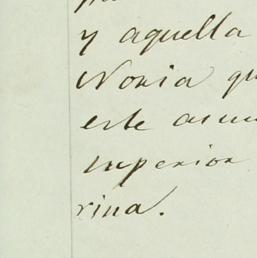 y aquella
Noria qu
este asun
superior
rina.